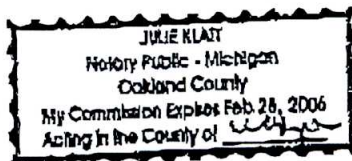 JULIE KLATT
Notary Public - Michigan
Oakland County
My Commission Expires Feb. 26, 2006
Acting in the County of